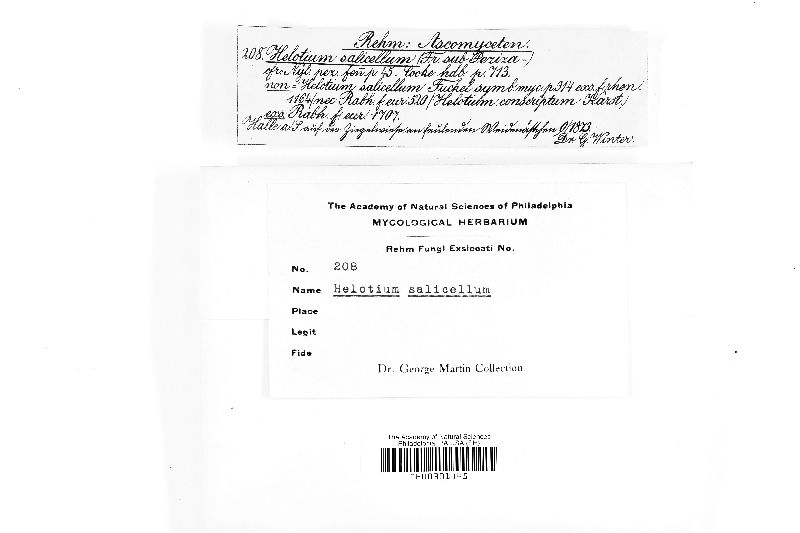 Rehm: Ascomyceten.
208. Helotium salicellum (Fr. sub Peziza-)
cfr. Nyl. pez. fen. p 43. Cooke hdb. p. 713.
non = Helotium salicellum Fuckel symb. myc. p. 314 exs. f. rhen.
1164/nec Rabh. f. eur. 520 (Helotium conscriptum Karst.)
exs. Rabh. f. eur. 1707.
Halle a/S. auf der Ziegelwiese an faulenden Weidenästchen 1873.
Dr. G. Winter.
The Academy of Natural Sciences of Philadelphia
MYCOLOGICAL HERBARIUM
Rehm Fungi Exsiccati No.
No. 208
Name Helotium salicellum
Place
Legit
Fide
Dr. George Martin Collection
The Academy of Natural Sciences
Philadelphia, PA, USA (PH)